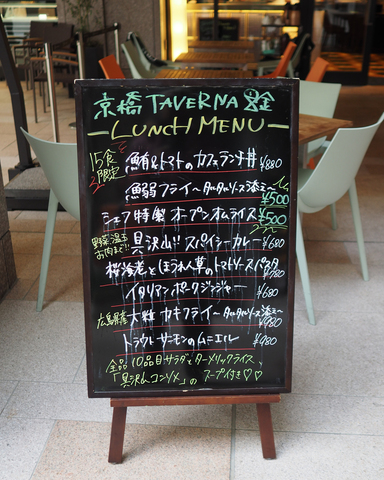 京橋 TAVERNA
LUNCH MENU
15食限定 鮪&トマトのカフェランチ丼 ¥880
魚弱フライ〜タルタルソース添え〜 ¥500
シェフ特製 オープンオムライス ¥500
野菜 温玉 お肉まで!! 具沢山!! スパイシーカレー ¥680
桜海老とほうれん草のトマトソースパスタ ¥780
イタリアンポークジンジャー ¥680
広島県産 大粒カキフライ〜タルタルソース添え〜 ¥980
トラウトサーモンのムニエル ¥980
全品 10品目サラダとターメリックライス、
「具沢山コンソメ」のスープ付き♡♡